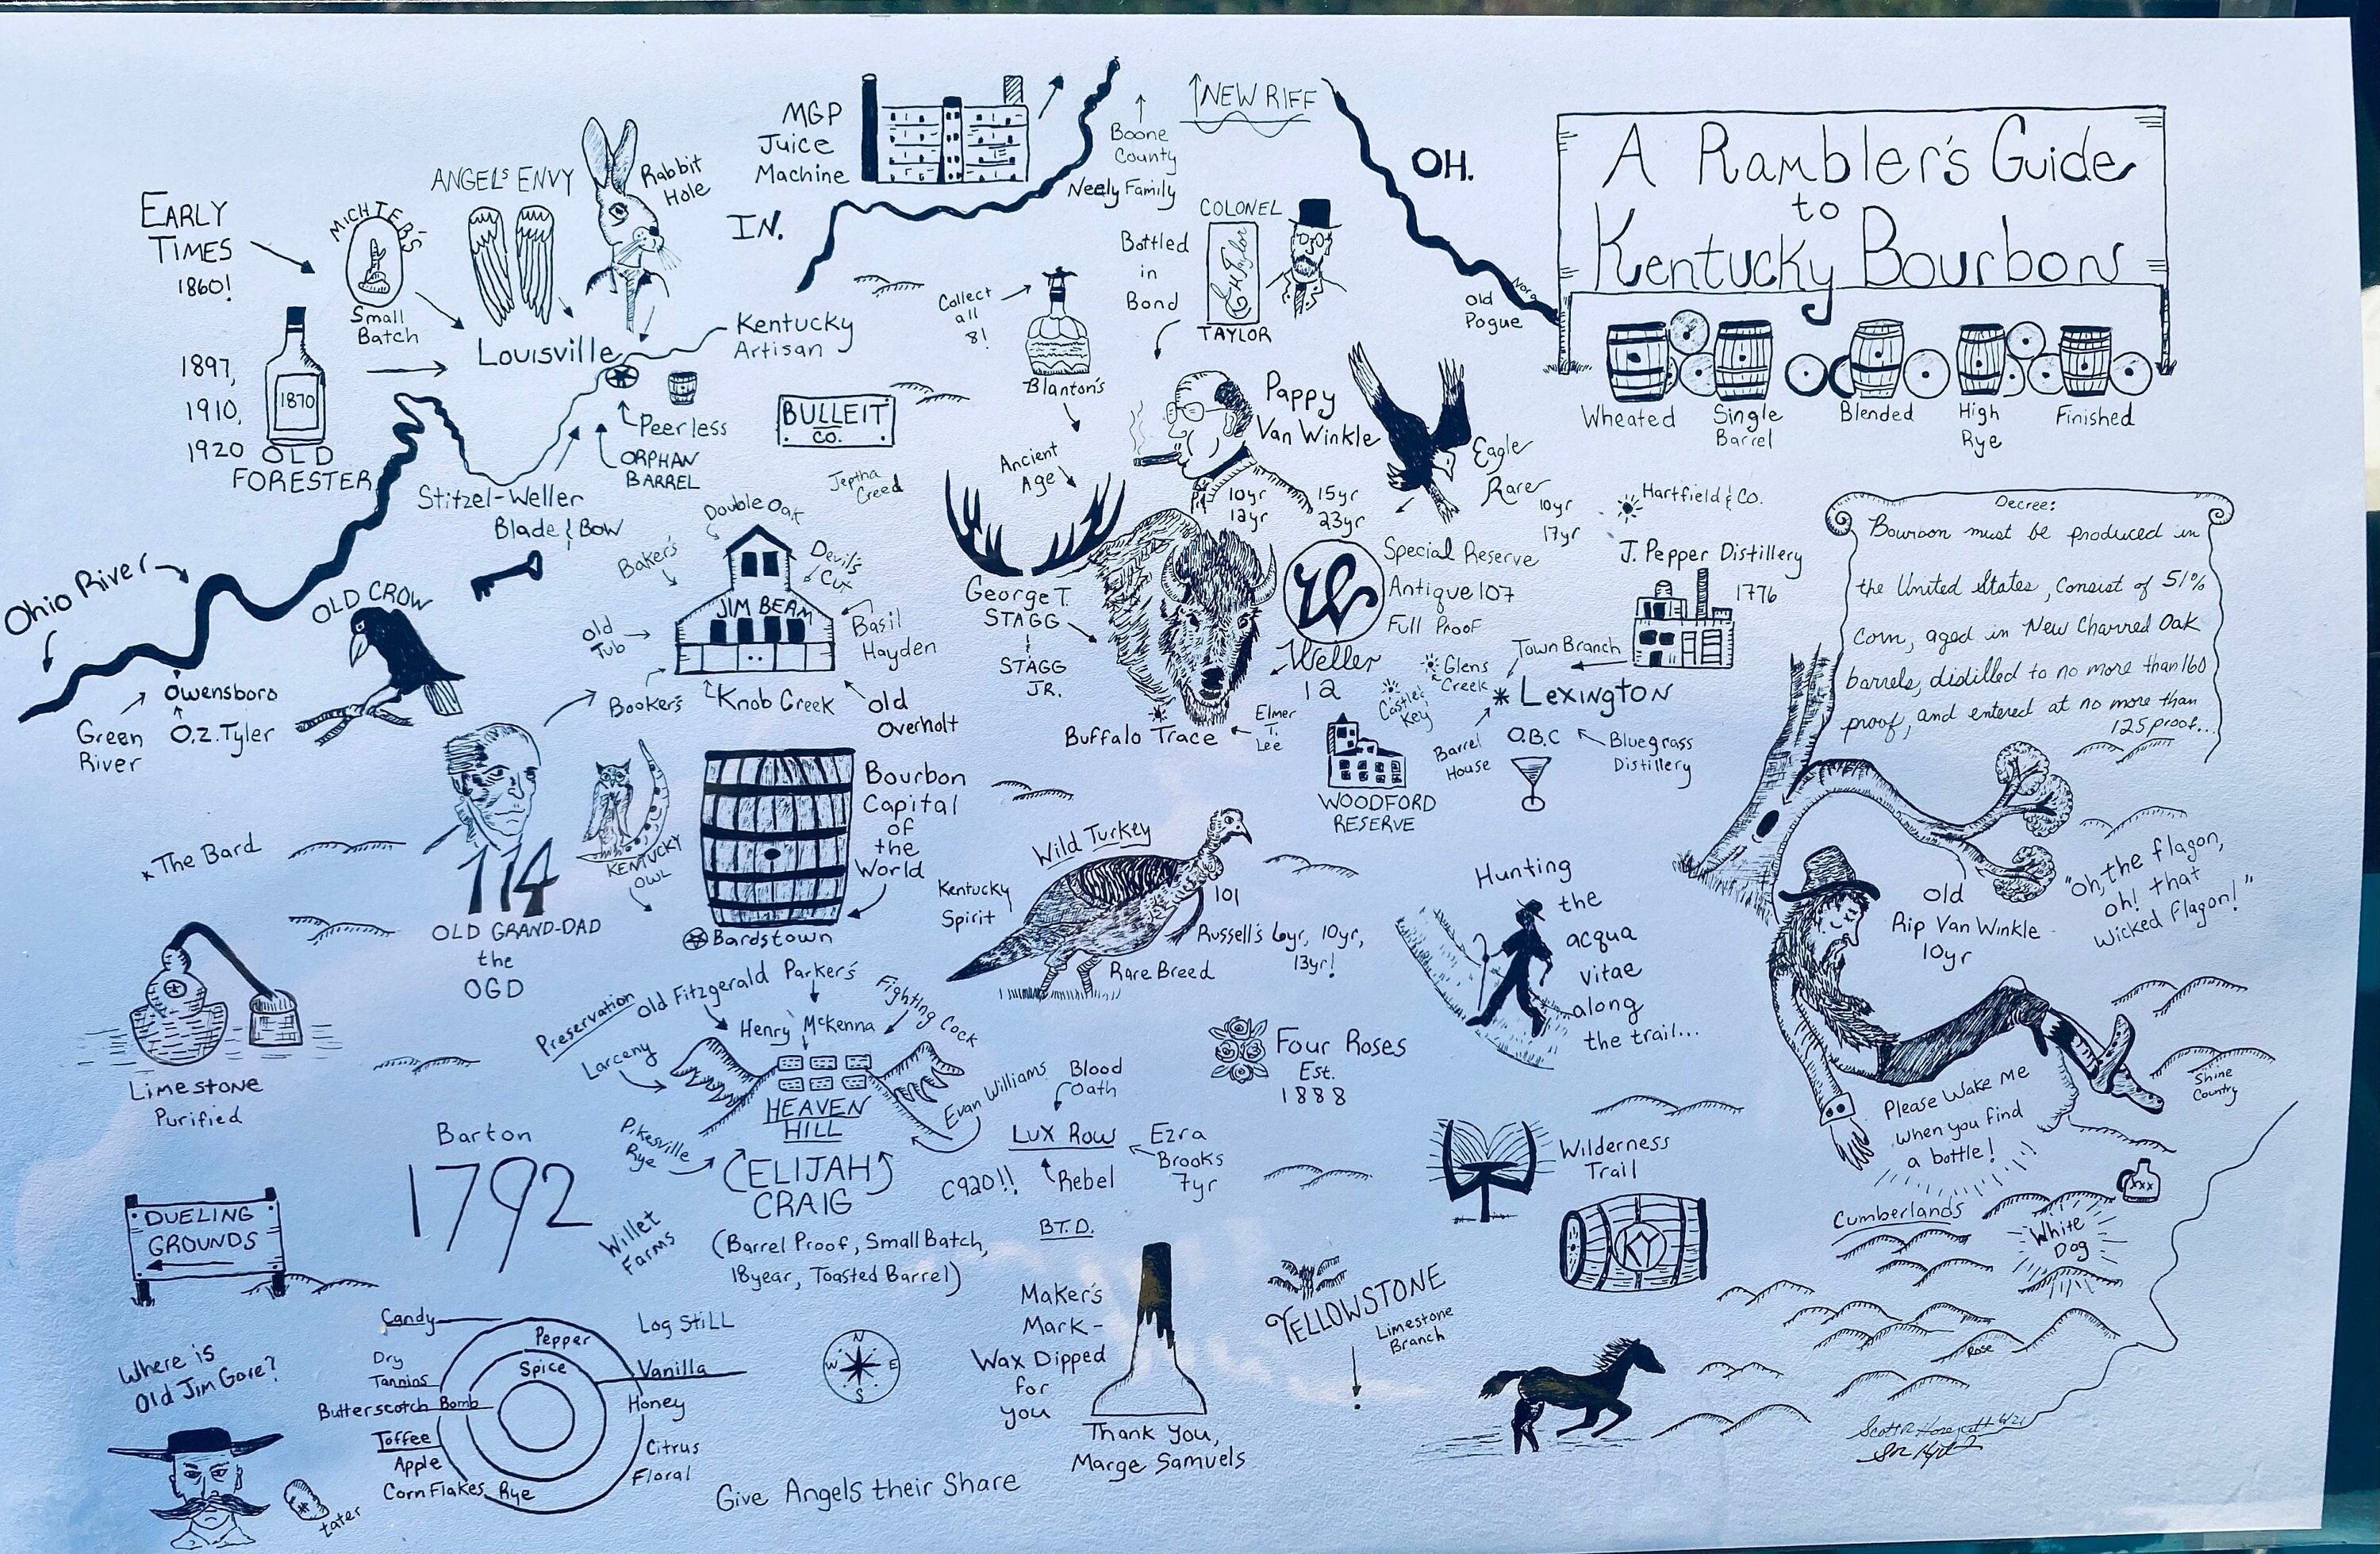 A Rambler's Guide
to
Kentucky Bourbons
Wheated
Single
Barrel
Blended
High
Rye
Finished
MGP
Juice
Machine
Boone
County
Neely Family
NEW RIFF
OH.
IN.
EARLY
TIMES
1860!
MICHTER'S
Small
Batch
ANGEL'S ENVY
Rabbit
Hole
Louisville
Kentucky
Artisan
1897,
1910,
1920
1870
OLD
FORESTER
Peerless
ORPHAN
BARREL
BULLEIT
CO.
Jeptha
Creed
Stitzel-Weller
Blade & Bow
Collect
all
8!
Blanton's
Bottled
in
Bond
COLONEL
EH Taylor
TAYLOR
Old
Pogue
Pappy
Van Winkle
10yr
12yr
15yr
23yr
Eagle
Rare
10yr
17yr
Ancient
Age
George T.
STAGG
STAGG
JR.
Special Reserve
Antique 107
Full Proof
W
Weller
12
Buffalo Trace
Elmer
T.
Lee
Hartfield & Co.
J. Pepper Distillery
1776
Town Branch
Glens
Creek
Castle &
Key
Lexington
Barrel
House
O.B.C
Bluegrass
Distillery
WOODFORD
RESERVE
Decree:
Bourbon must be produced in
the United States, consist of 51%
corn, aged in New Charred Oak
barrels, distilled to no more than 160
proof, and entered at no more than
125 proof...
Ohio River
OLD CROW
Owensboro
Green
River
O.Z. Tyler
Double Oak
Baker's
Devil's
Cut
JIM BEAM
Old
Tub
Basil
Hayden
Booker's
Knob Creek
Old
Overholt
The Bard
114
OLD GRAND-DAD
the
OGD
KENTUCKY
OWL
Bourbon
Capital
of
the
World
Bardstown
Wild Turkey
Kentucky
Spirit
101
Russell's 6yr, 10yr,
13yr!
Rare Breed
Hunting
the
acqua
vitae
along
the trail...
Old
Rip Van Winkle
10yr
"Oh, the flagon,
oh! that
wicked flagon!"
Please Wake Me
when you find
a bottle!
Shine
Country
Limestone
Purified
Preservation
Old Fitzgerald
Parker's
Fighting Cock
Henry McKenna
Larceny
HEAVEN
HILL
Evan Williams
Pikesville
Rye
ELIJAH
CRAIG
C920!!
(Barrel Proof, Small Batch,
18year, Toasted Barrel)
Blood
Oath
Lux Row
Ezra
Brooks
7yr
Rebel
B.T.D.
Four Roses
Est.
1888
Wilderness
Trail
KY
Cumberlands
XXX
White
Dog
Rose
Barton
1792
Willet
Farms
DUELING
GROUNDS
Where is
Old Jim Gore?
tater
Candy
Pepper
Spice
Dry
Tannins
Butterscotch Bomb
Toffee
Apple
Corn Flakes
Rye
Log Still
Vanilla
Honey
Citrus
Floral
N
W
E
S
Give Angels their Share
Maker's
Mark-
Wax Dipped
for
you
Thank You,
Marge Samuels
YELLOWSTONE
Limestone
Branch